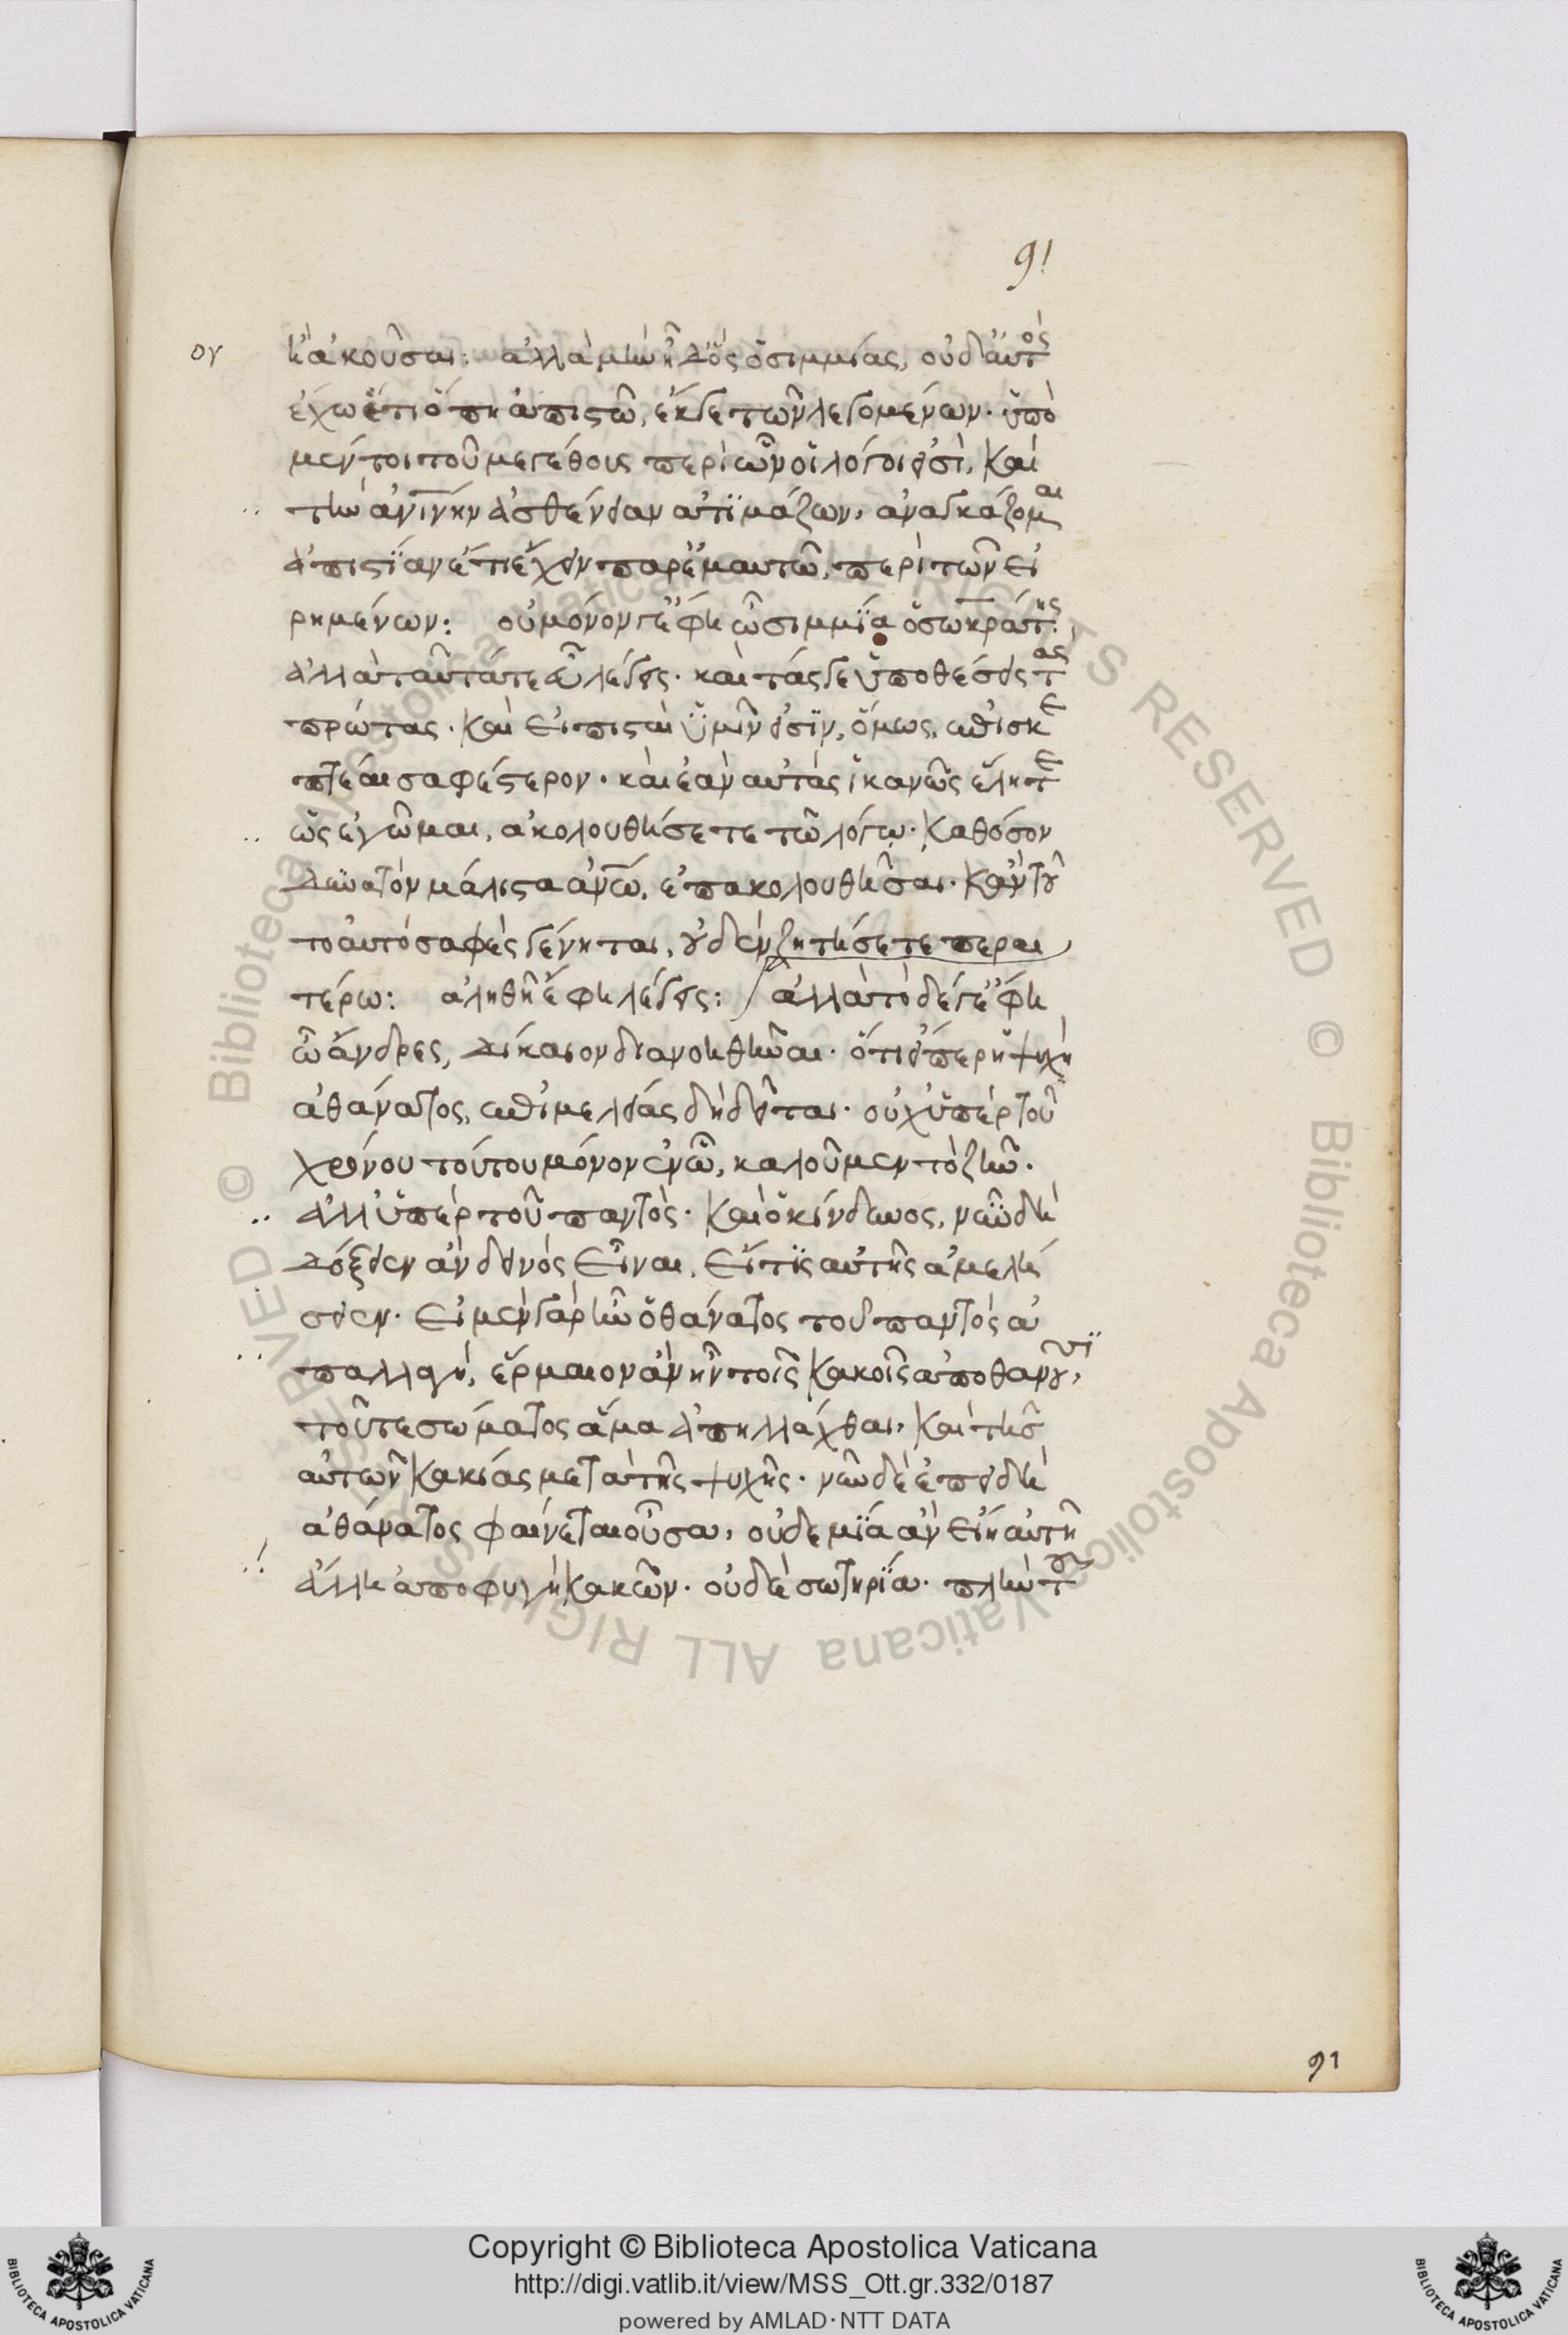 91
ου ἢ ἀκοῦσαι: ἀλλὰ μὴν ἦ δ' ὃς ὁ σιμμίας, οὐδ' αὐτὸς
ἔχω ἔτι ὅπη ἀπιστῶ, ἔκ γε τῶν λεγομένων· ὑπὸ
μέντοι τοῦ μεγέθους περὶ ὧν οἱ λόγοι εἰσὶ, καὶ
τὴν ἀνίνην ἀσθένειαν ἀτιμάζων, ἀναγκάζομαι
ἀπιστίαν ἔτι ἔχειν παρ' ἐμαυτῶ, περὶ τῶν εἰ
ρημένων: οὐ μόνον γ' ἔφη ὦ σιμμία ὁ σωκράτης,
ἀλλὰ ταῦτά τε εὖ λέγεις· καὶ τάς γε ὑποθέσεις τὰς
πρώτας· καὶ εἰ πισταὶ ὑμῖν εἰσὶν, ὅμως, ἐπισκε
πτέαι σαφέστερον· καὶ ἐὰν αὐτὰς ἱκανῶς ἕλητε
ὡς ἐγὦμαι, ἀκολουθήσετε τῶ λόγω· καθόσον
δυνατὸν μάλιστα ἀνῶ, ἐπακολουθῆσαι· κἂν τοῦ
το αὐτὸ σαφὲς γένηται, οὐδὲν ζητήσετε περαι
τέρω: ἀληθῆ ἔφη λέγεις: ἀλλὰ τὸ δέ γ' ἔφη
ὦ ἄνδρες, δίκαιον διανοηθῆναι· ὅτι εἴπερ ἡ ψυχὴ
ἀθάνατος, ἐπιμελείας δὴ δεῖται· οὐχ ὑπὲρ τοῦ
χρόνου τούτου μόνον ἐν ὧ, καλοῦμεν τὸ ζῆν·
ἀλλ' ὑπὲρ τοῦ παντὸς· καὶ ὁ κίνδυνος, νῦν δὴ
δόξειεν ἂν δεινὸς εἶναι, εἴ τις αὐτῆς ἀμελή
σειεν· εἰ μὲν γὰρ ἦν ὁ θάνατος τοῦ παντὸς ἀ
παλλαγὴ, ἕρμαιον ἂν ἦν τοῖς κακοῖς ἀποθανοῦσι,
τοῦ τε σώματος ἅμα ἀπηλλάχθαι, καὶ τῆς
αὑτῶν κακίας μετὰ τῆς ψυχῆς· νῦν δὲ ἐπειδὴ
ἀθάνατος φαίνεται οὖσα, οὐδεμία ἂν εἴη αὐτῆ
ἄλλη ἀποφυγὴ κακῶν· οὐδὲ σωτηρία· πλὴν τοῦ
91
Copyright © Biblioteca Apostolica Vaticana
http://digi.vatlib.it/view/MSS_Ott.gr.332/0187
powered by AMLAD·NTT DATA
BIBLIOTECA APOSTOLICA VATICANA
BIBLIOTECA APOSTOLICA VATICANA
© Biblioteca Apostolica Vaticana ALL RIGHTS RESERVED © Biblioteca Apostolica Vaticana ALL RIGHTS RESERVED